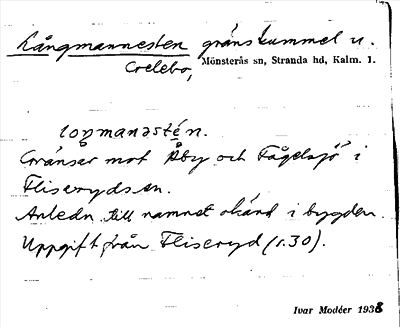 Långmannesten gränskummel u.
Crelebo, Mönsterås sn, Stranda hd, Kalm. l.
loŋmanəstén.
Gränsar mot Åby och Fågelsjö i
Fliseryds sn.
Anledn. till namnet okänd i bygden.
Uppgift från Fliseryd (s.30).
Ivar Modéer 1938